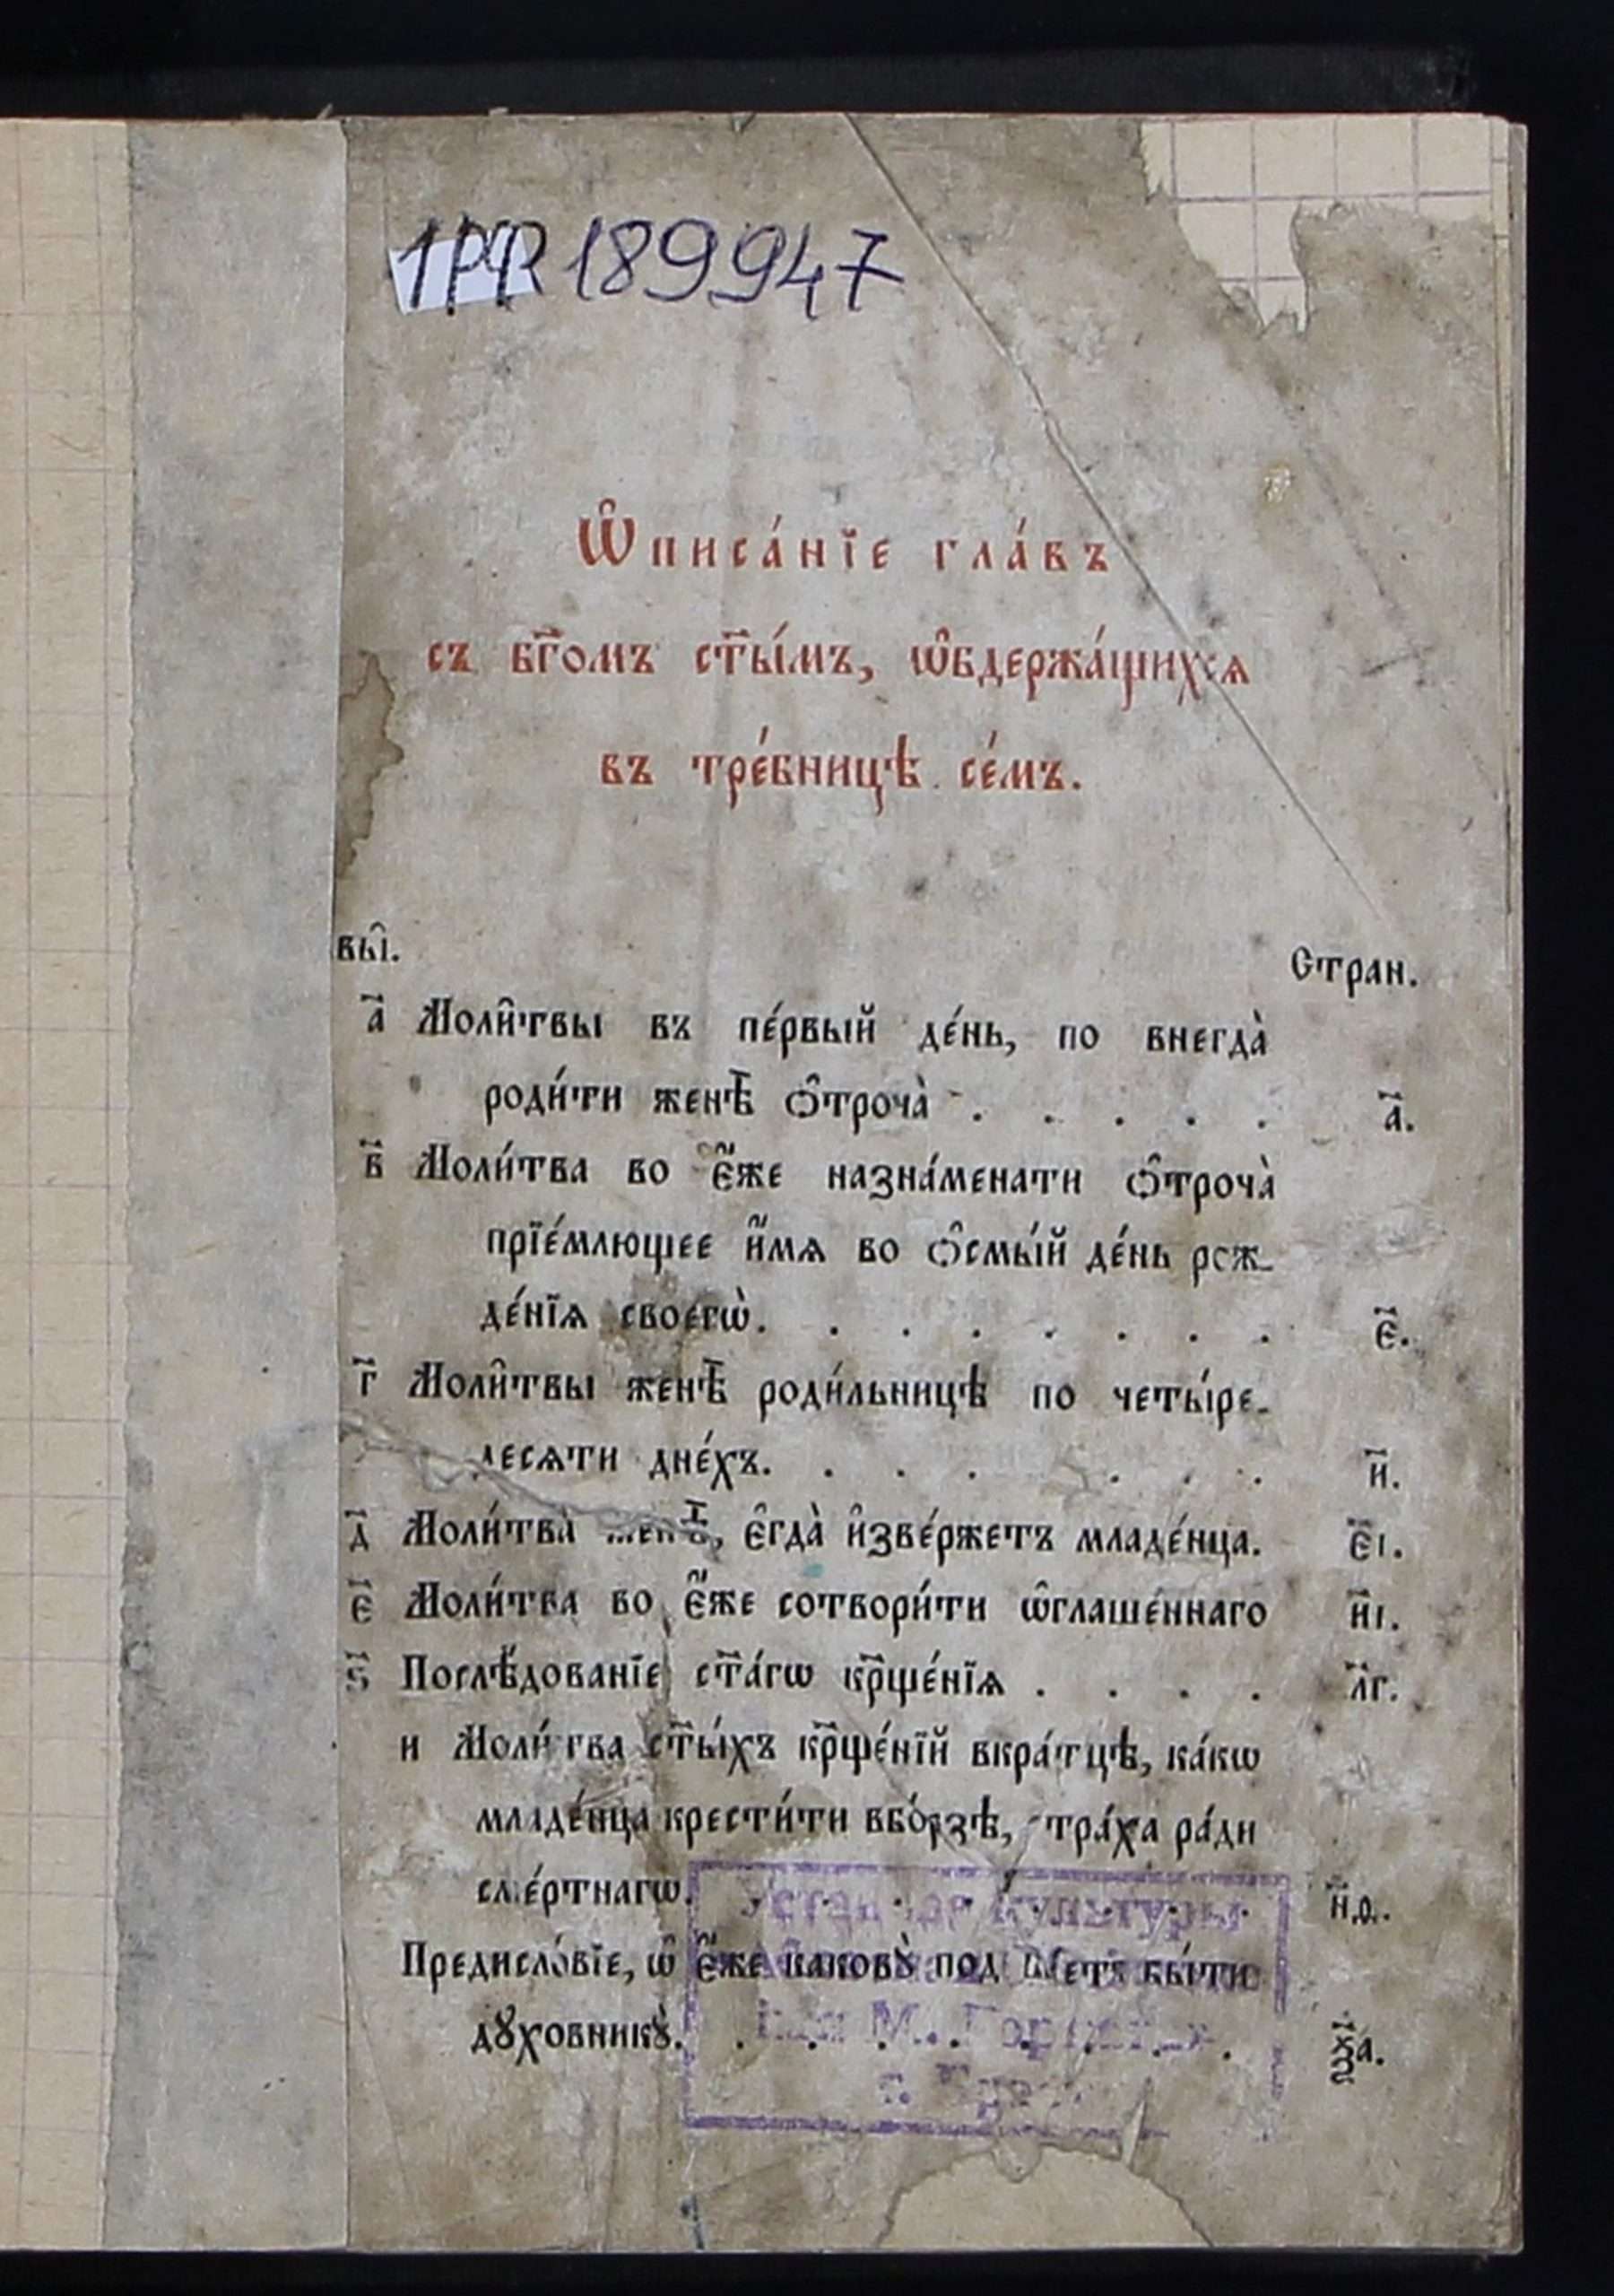 1РФ 189947
Ѡ҆писа́нїе гла́въ
съ бг҃омъ ст҃ы́мъ, ѡ҆бдержа́щихсѧ
въ тре́бницѣ се́мъ.
вы̑.
Стран.
а҃ Моли̑твы въ пе́рвый де́нь, по внегда̀
роди́ти женѣ̀ ѻ҆троча̀ . . . . . а҃.
в҃ Моли́тва во є҆́же назна́менати ѻ҆троча̀
прїе́млющее и҆́мѧ во ѻ҆смы́й де́нь рож-
де́нїѧ своегѡ̀. . . . . . . . є҃.
г҃ Моли̑твы женѣ̀ роди́льницѣ по четы́ре-
десѧти дне́хъ. . . . . . . и҃.
д҃ Моли́тва женѣ̀, є҆гда̀ и҆зве́ржетъ младе́нца. є҃і.
є҃ Моли́тва во є҆́же сотвори́ти ѡ҆глаше́ннаго и҃і.
ѕ҃ Послѣ́дованїе ст҃а́гѡ кр҃ще́нїѧ . . . . л҃г.
и Моли́тва ст҃ы́хъ кр҃ще́нїй вкра́тцѣ, ка́кѡ
младе́нца крести́ти вбо́рзѣ, стра́ха ра́ди
сме́ртнагѡ. . . . . . . н҃ѳ.
Предисло́вїе, ѡ҆ є҆́же каковꙋ̀ под ет бы́ти
дꙋховникꙋ̀. . . . . . . . ѯ҃а.
М. Горь